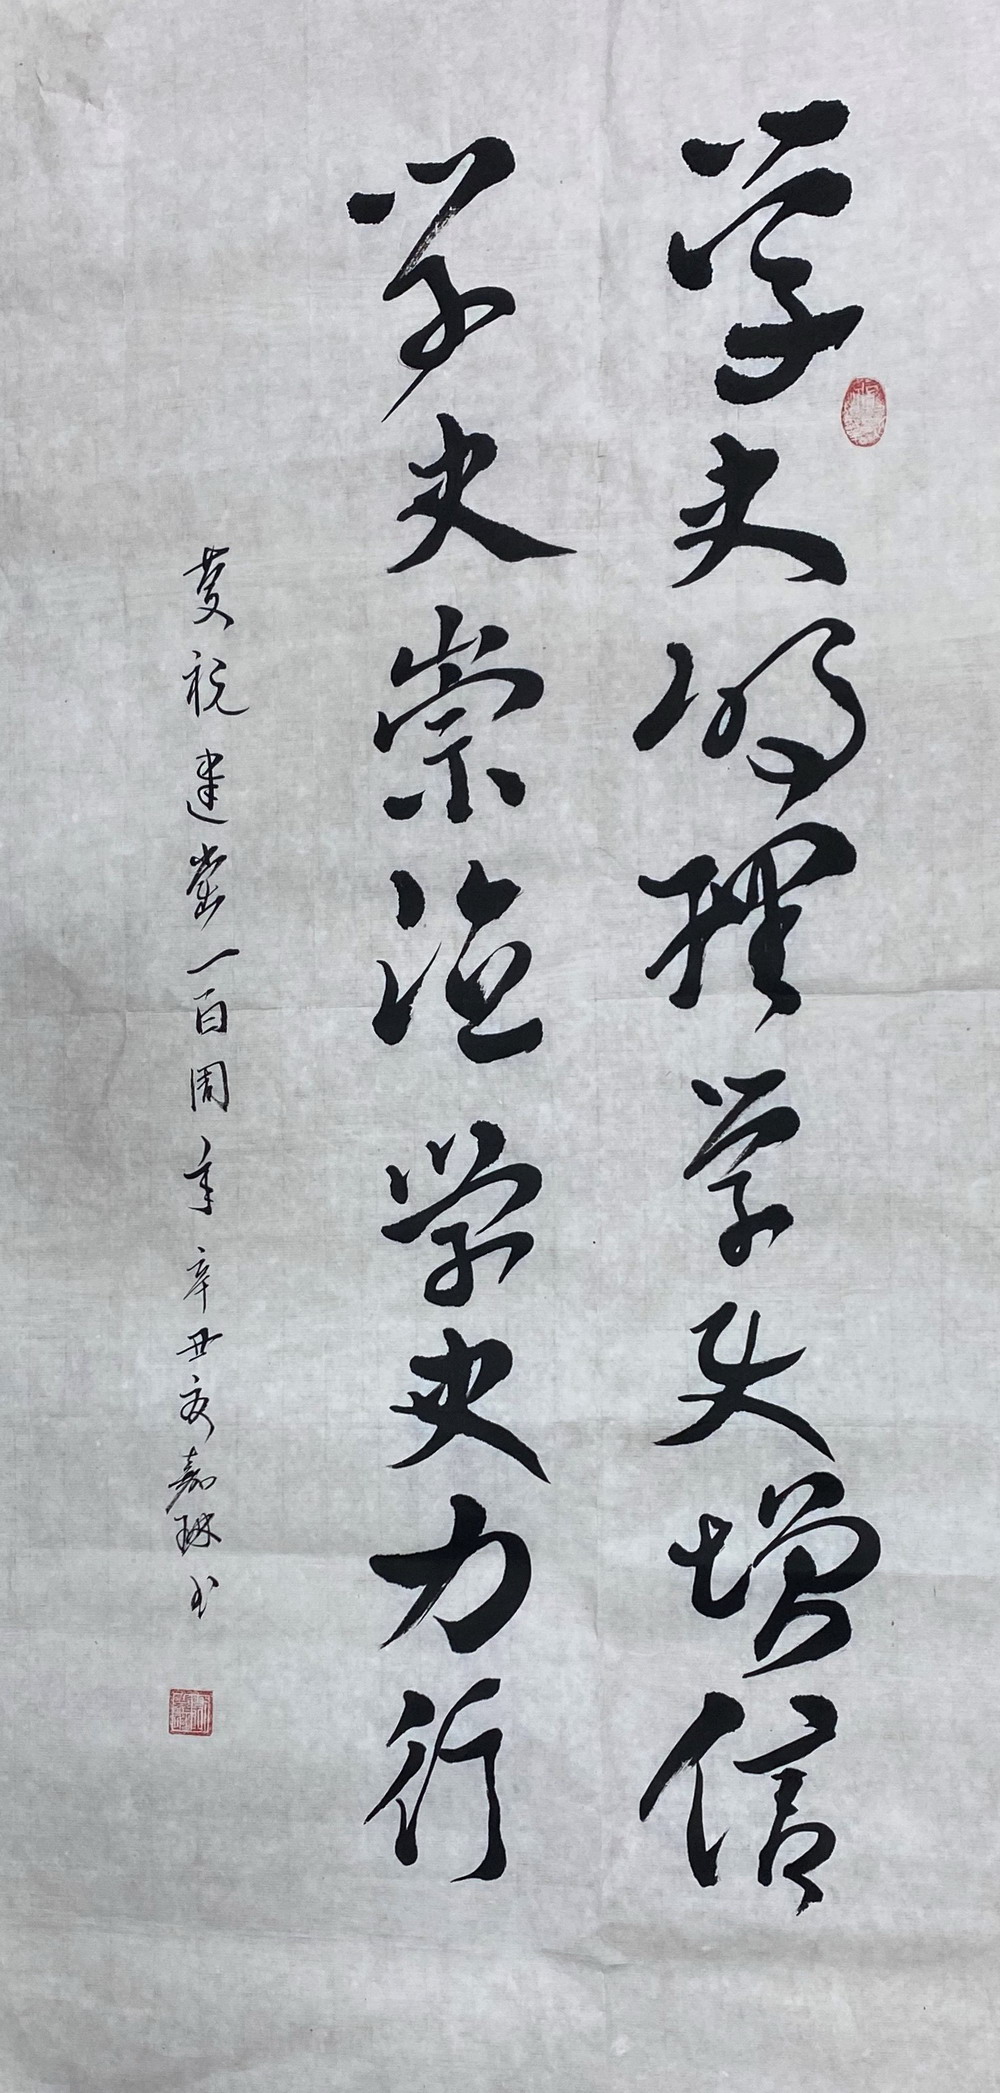 学史明理学史增信
学史崇德学史力行
庆祝建党一百周年辛丑夏嘉琳书